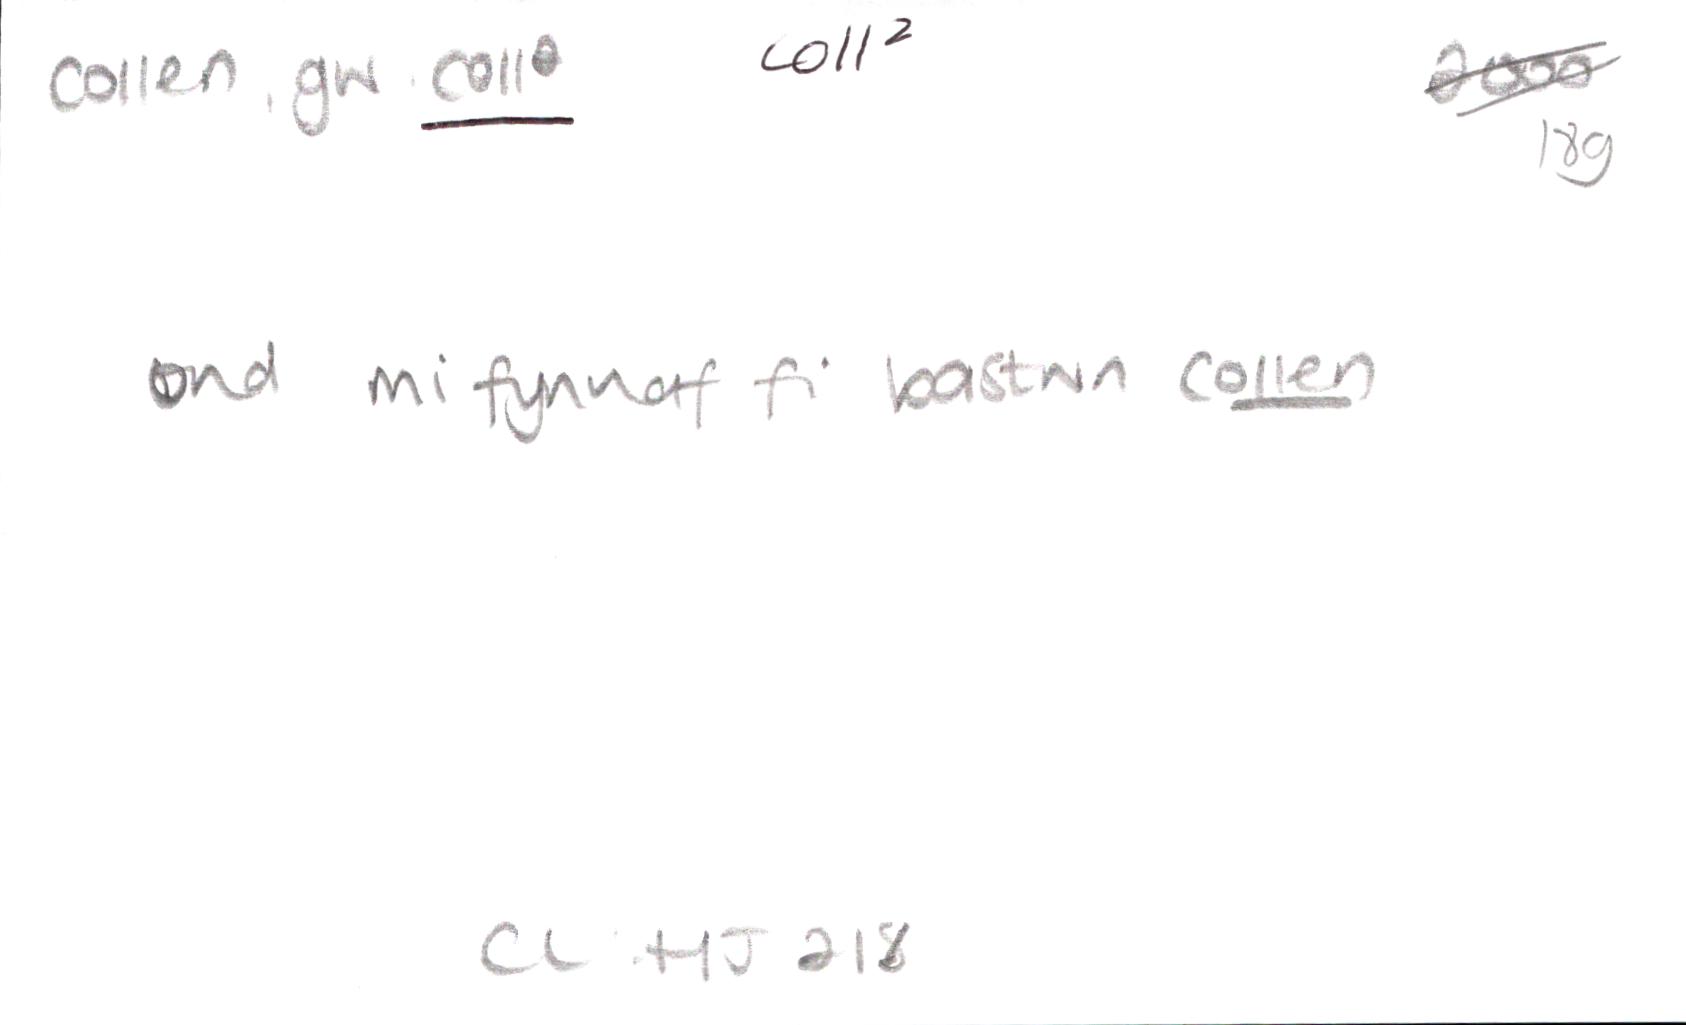 collen, gw. coll² coll² 2000
18g
ond mi fynnaf fi bastwn collen
CL : HJ 218